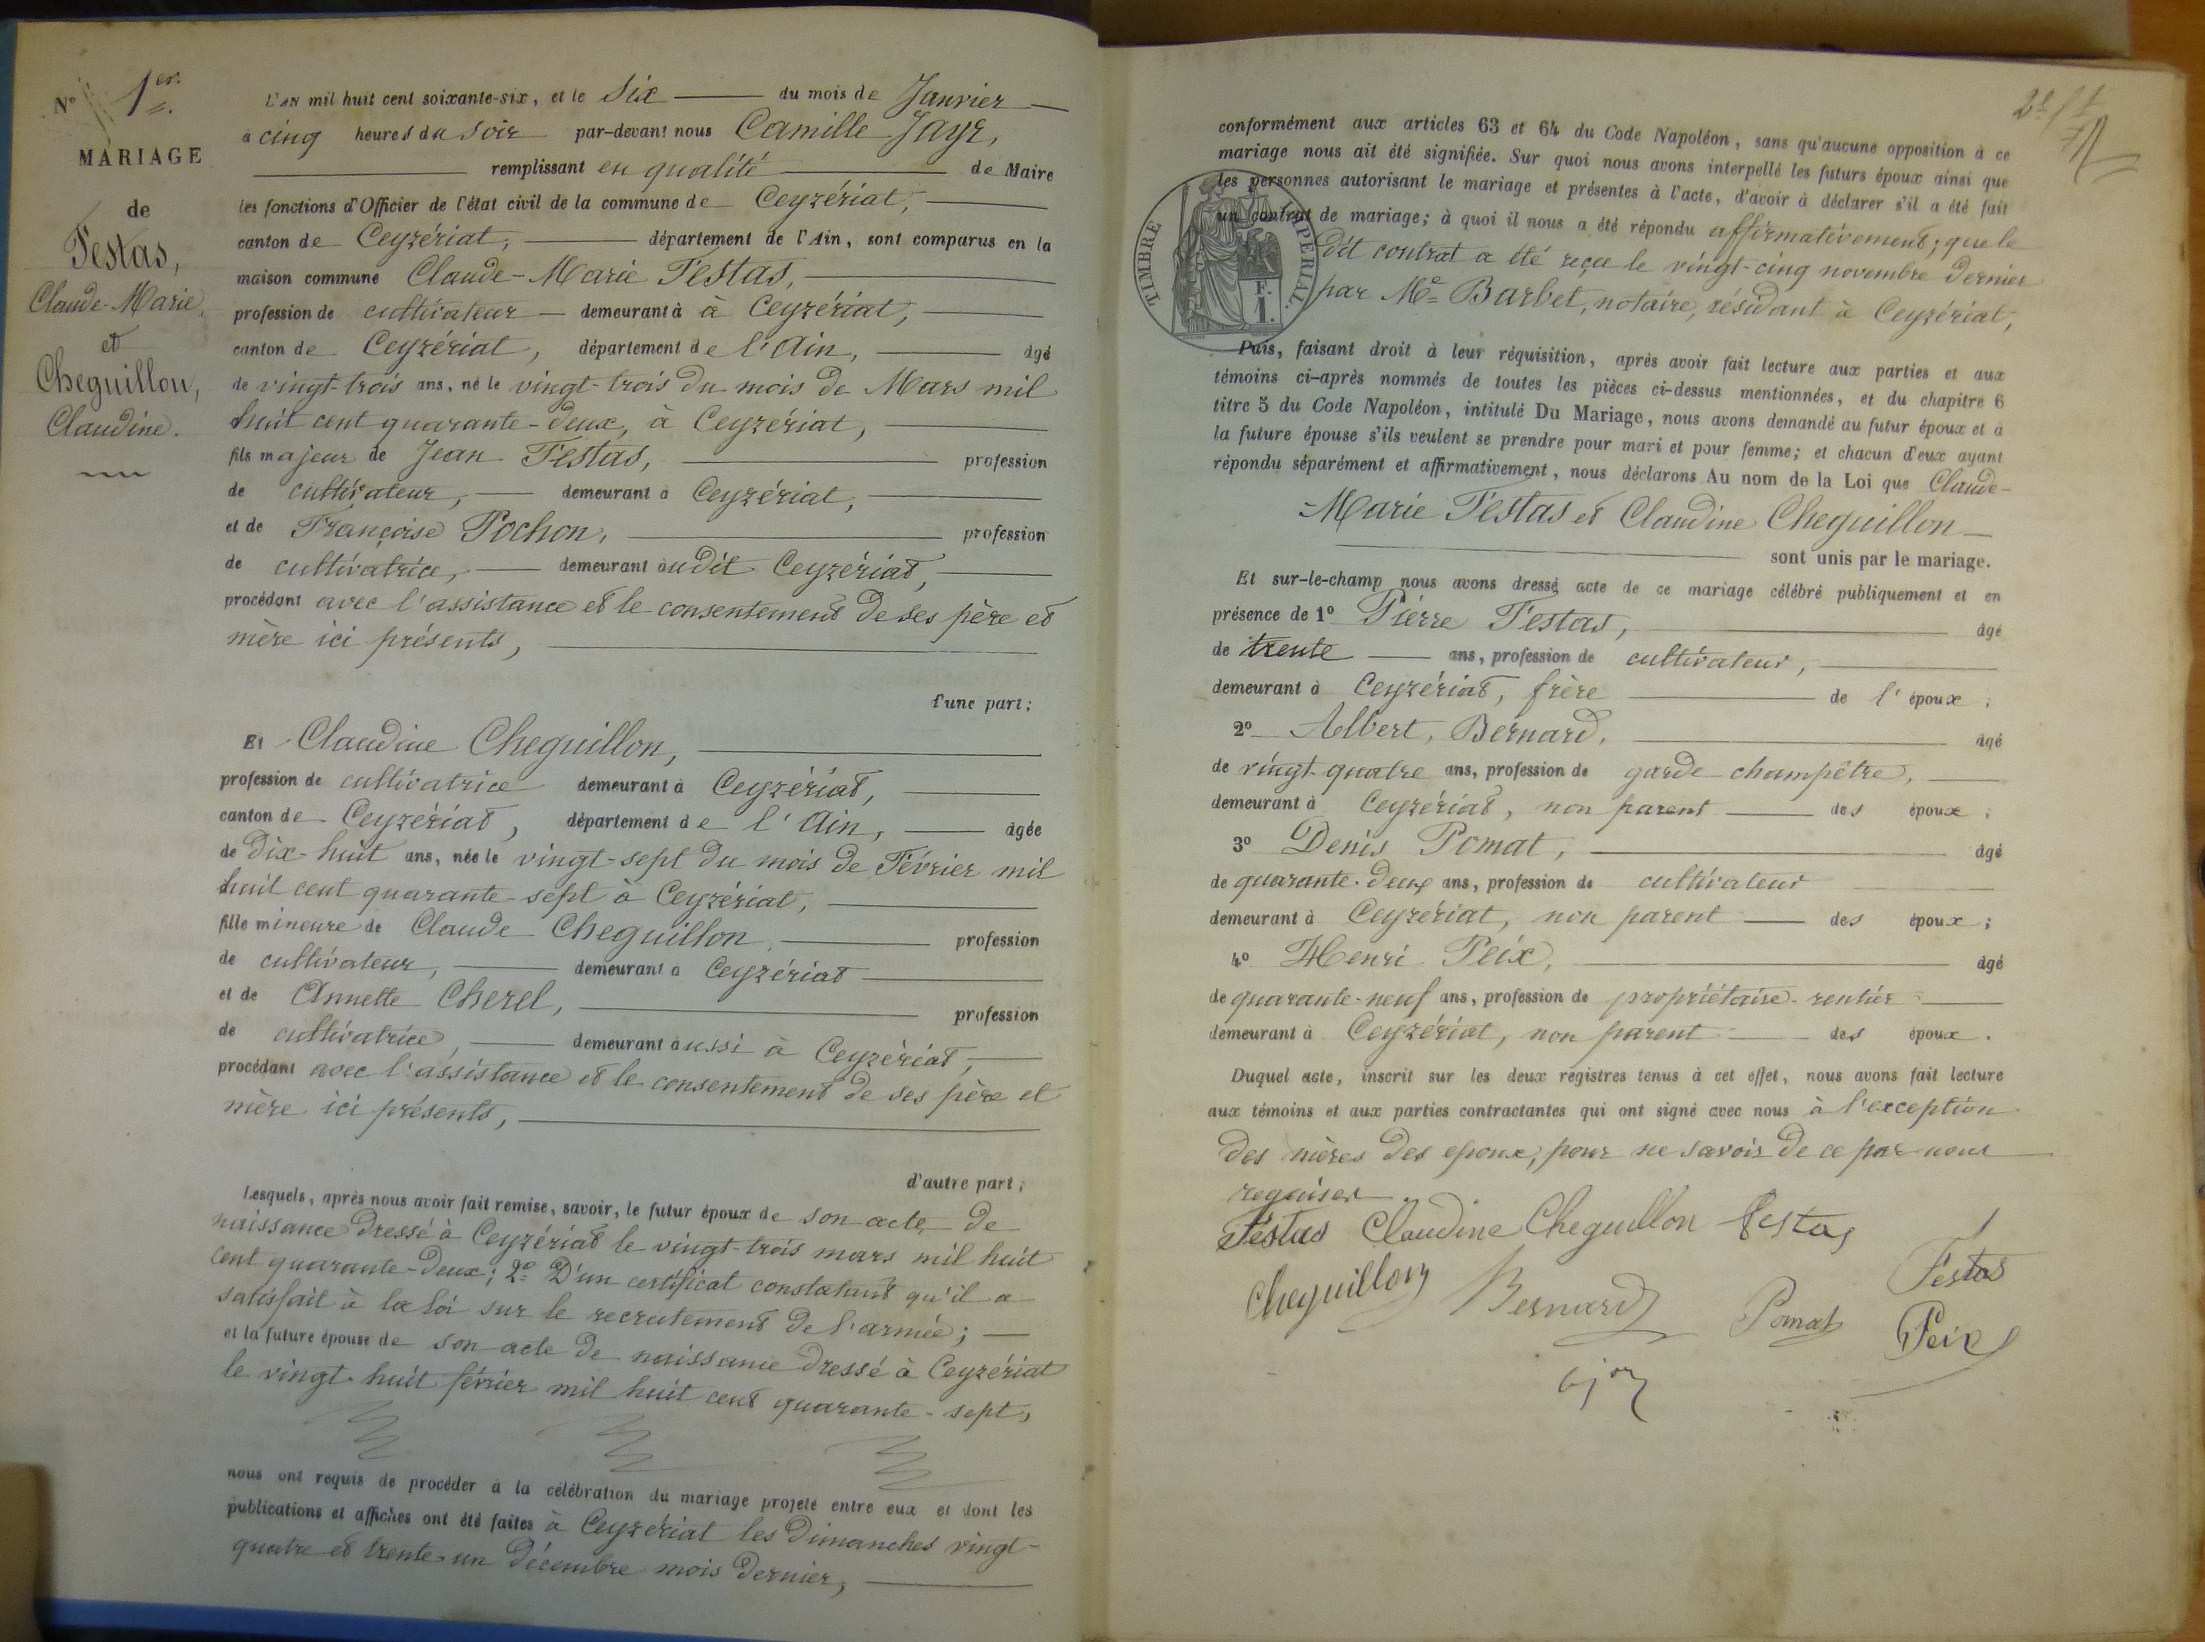 N° 1er.
MARIAGE
de
Festas,
Claude-Marie,
et
Cheguillon,
Claudine.
L'AN mil huit cent soixante-six, et le Six du mois de Janvier
à cinq heures du soir par-devant nous Camille Jayr,
remplissant en qualité de Maire
les fonctions d'Officier de l'état civil de la commune de Ceyzériat,
canton de Ceyzériat, département de l'Ain, sont comparus en la
maison commune Claude-Marie Festas,
profession de cultivateur demeurant à à Ceyzériat,
canton de Ceyzériat, département de l'Ain, âgé
de vingt-trois ans, né le vingt-trois du mois de Mars mil
huit cent quarante-deux, à Ceyzériat,
fils majeur de Jean Festas, profession
de cultivateur, demeurant à Ceyzériat,
et de Françoise Pochon, profession
de cultivatrice, demeurant audit Ceyzériat,
procédant avec l'assistance et le consentement de ses père et
mère ici présents,
d'une part;
Et Claudine Cheguillon,
profession de cultivatrice demeurant à Ceyzériat,
canton de Ceyzériat, département de l'Ain, âgée
de Dix-huit ans, née le vingt-sept du mois de Février mil
huit cent quarante-sept à Ceyzériat,
fille mineure de Claude Cheguillon, profession
de cultivateur, demeurant à Ceyzériat
et de Annette Cherel, profession
de cultivatrice, demeurant aussi à Ceyzériat,
procédant avec l'assistance et le consentement de ses père et
mère ici présents,
d'autre part;
Lesquels, après nous avoir fait remise, savoir, le futur époux de son acte de
naissance dressé à Ceyzériat le vingt-trois mars mil huit
cent quarante-deux; 2° D'un certificat constatant qu'il a
satisfait à la loi sur le recrutement de l'armée;
et la future épouse de son acte de naissance dressé à Ceyzériat
le vingt-huit février mil huit cent quarante-sept,
nous ont requis de procéder à la célébration du mariage projeté entre eux et dont les
publications et affiches ont été faites à Ceyzériat les Dimanches vingt-
quatre et trente-un Décembre mois dernier,
conformément aux articles 63 et 64 du Code Napoléon, sans qu'aucune opposition à ce
mariage nous ait été signifiée. Sur quoi nous avons interpellé les futurs époux ainsi que
les personnes autorisant le mariage et présentes à l'acte, d'avoir à déclarer s'il a été fait
un contrat de mariage; à quoi il nous a été répondu affirmativement; que le
dit contrat a été reçu le vingt-cinq novembre dernier
par Me Barbet, notaire, résidant à Ceyzériat,
TIMBRE IMPERIAL.
F.
1.
Puis, faisant droit à leur réquisition, après avoir fait lecture aux parties et aux
témoins ci-après nommés de toutes les pièces ci-dessus mentionnées, et du chapitre 6
titre 5 du Code Napoléon, intitulé Du Mariage, nous avons demandé au futur époux et à
la future épouse s'ils veulent se prendre pour mari et pour femme; et chacun d'eux ayant
répondu séparément et affirmativement, nous déclarons Au nom de la Loi que Claude-
Marie Festas et Claudine Cheguillon
sont unis par le mariage.
Et sur-le-champ nous avons dressé acte de ce mariage célébré publiquement et en
présence de 1° Pierre Festas, âgé
de trente ans, profession de cultivateur,
demeurant à Ceyzériat, frère de l'époux;
2° Albert, Bernard, âgé
de vingt-quatre ans, profession de garde champêtre,
demeurant à Ceyzériat, non parent des époux;
3° Denis Pomat, âgé
de quarante-deux ans, profession de cultivateur
demeurant à Ceyzériat, non parent des époux;
4° Henri Peix, âgé
de quarante-neuf ans, profession de propriétaire-rentier
demeurant à Ceyzériat, non parent des époux.
Duquel acte, inscrit sur les deux registres tenus à cet effet, nous avons fait lecture
aux témoins et aux parties contractantes qui ont signé avec nous à l'exception
des mères des époux, pour ne savoir de ce par nous
requises
Festas Claudine Cheguillon Festas
Festas
Cheguillon Bernard Pomat Peix